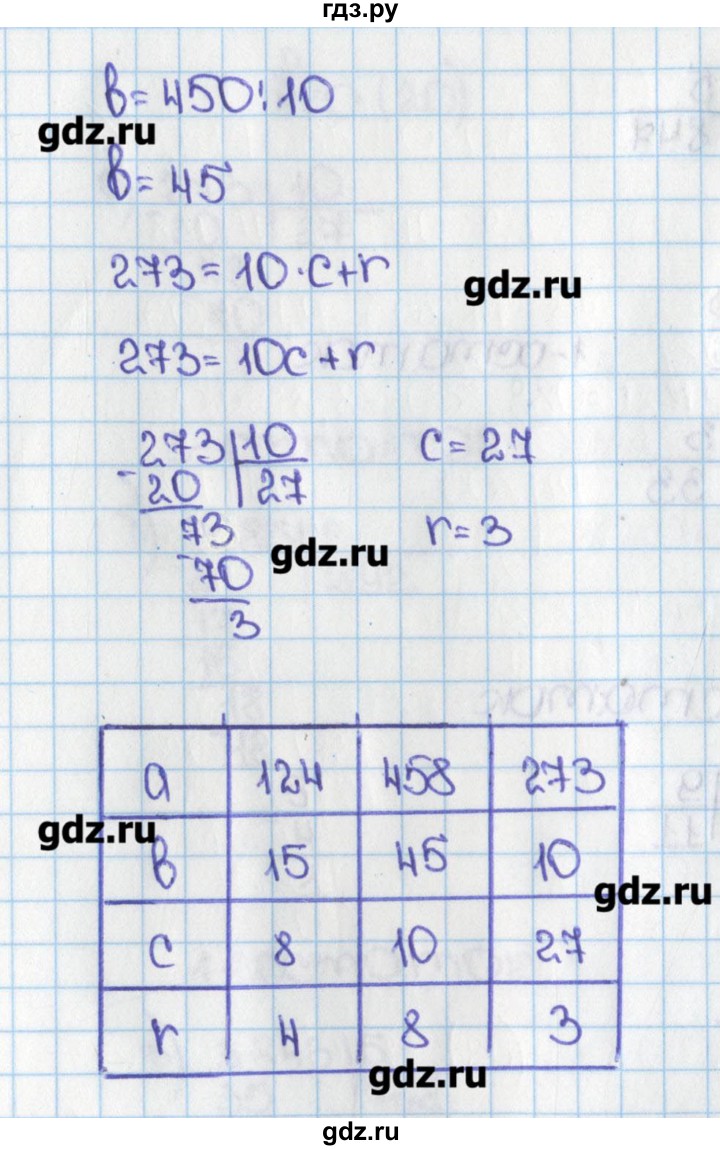 гдз.ру
в = 450 : 10
gdz.ru
в = 45
273 = 10 · c + r
gdz.ru
273 = 10c + r
273 | 10
- 20 | 27
c = 27
73
r = 3
gdz.ru
- 70
3
a 124 458 273
gdz.ru
в 15 45 10
gdz.ru
c 8 10 27
r 4 8 3
gdz.ru
gdz.ru